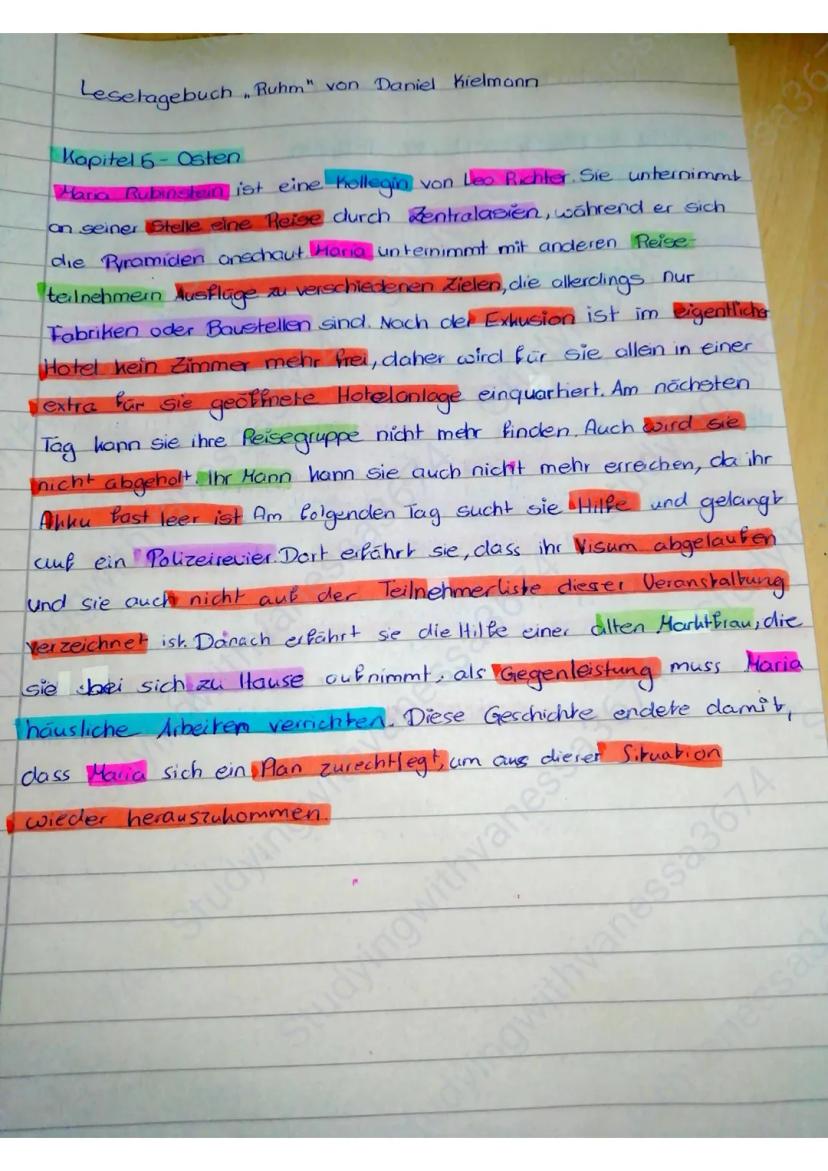 Lesetagebuch „Ruhm" von Daniel Kielmann
Kapitel 5 - Osten
Maria Rubinstein ist eine Kollegin von Leo Richter. Sie unternimmt
an seiner Stelle eine Reise durch Zentralasien, während er sich
die Pyramiden anschaut. Maria unternimmt mit anderen Reise-
teilnehmern Ausflüge zu verschiedenen Zielen, die allerdings nur
Fabriken oder Baustellen sind. Nach der Exkusion ist im eigentlichen
Hotel kein Zimmer mehr frei, daher wird für sie allein in einer
extra für sie geöffnete Hotelanlage einquartiert. Am nächsten
Tag kann sie ihre Reisegruppe nicht mehr finden. Auch wird sie
nicht abgeholt. Ihr Mann kann sie auch nicht mehr erreichen, da ihr
Akku fast leer ist. Am folgenden Tag sucht sie Hilfe und gelangt
auf ein Polizeirevier. Dort erfährt sie, dass ihr Visum abgelaufen
und sie auch nicht auf der Teilnehmerliste dieser Veranstaltung
verzeichnet ist. Danach erfährt sie die Hilfe einer alten Marktfrau, die
sie bei sich zu Hause aufnimmt, als Gegenleistung muss Maria
häusliche Arbeiten verrichten. Diese Geschichte endete damit,
dass Maria sich ein Plan zurechtlegt, um aus dieser Situation
wieder herauszukommen.
Studyingwithvanessa3674